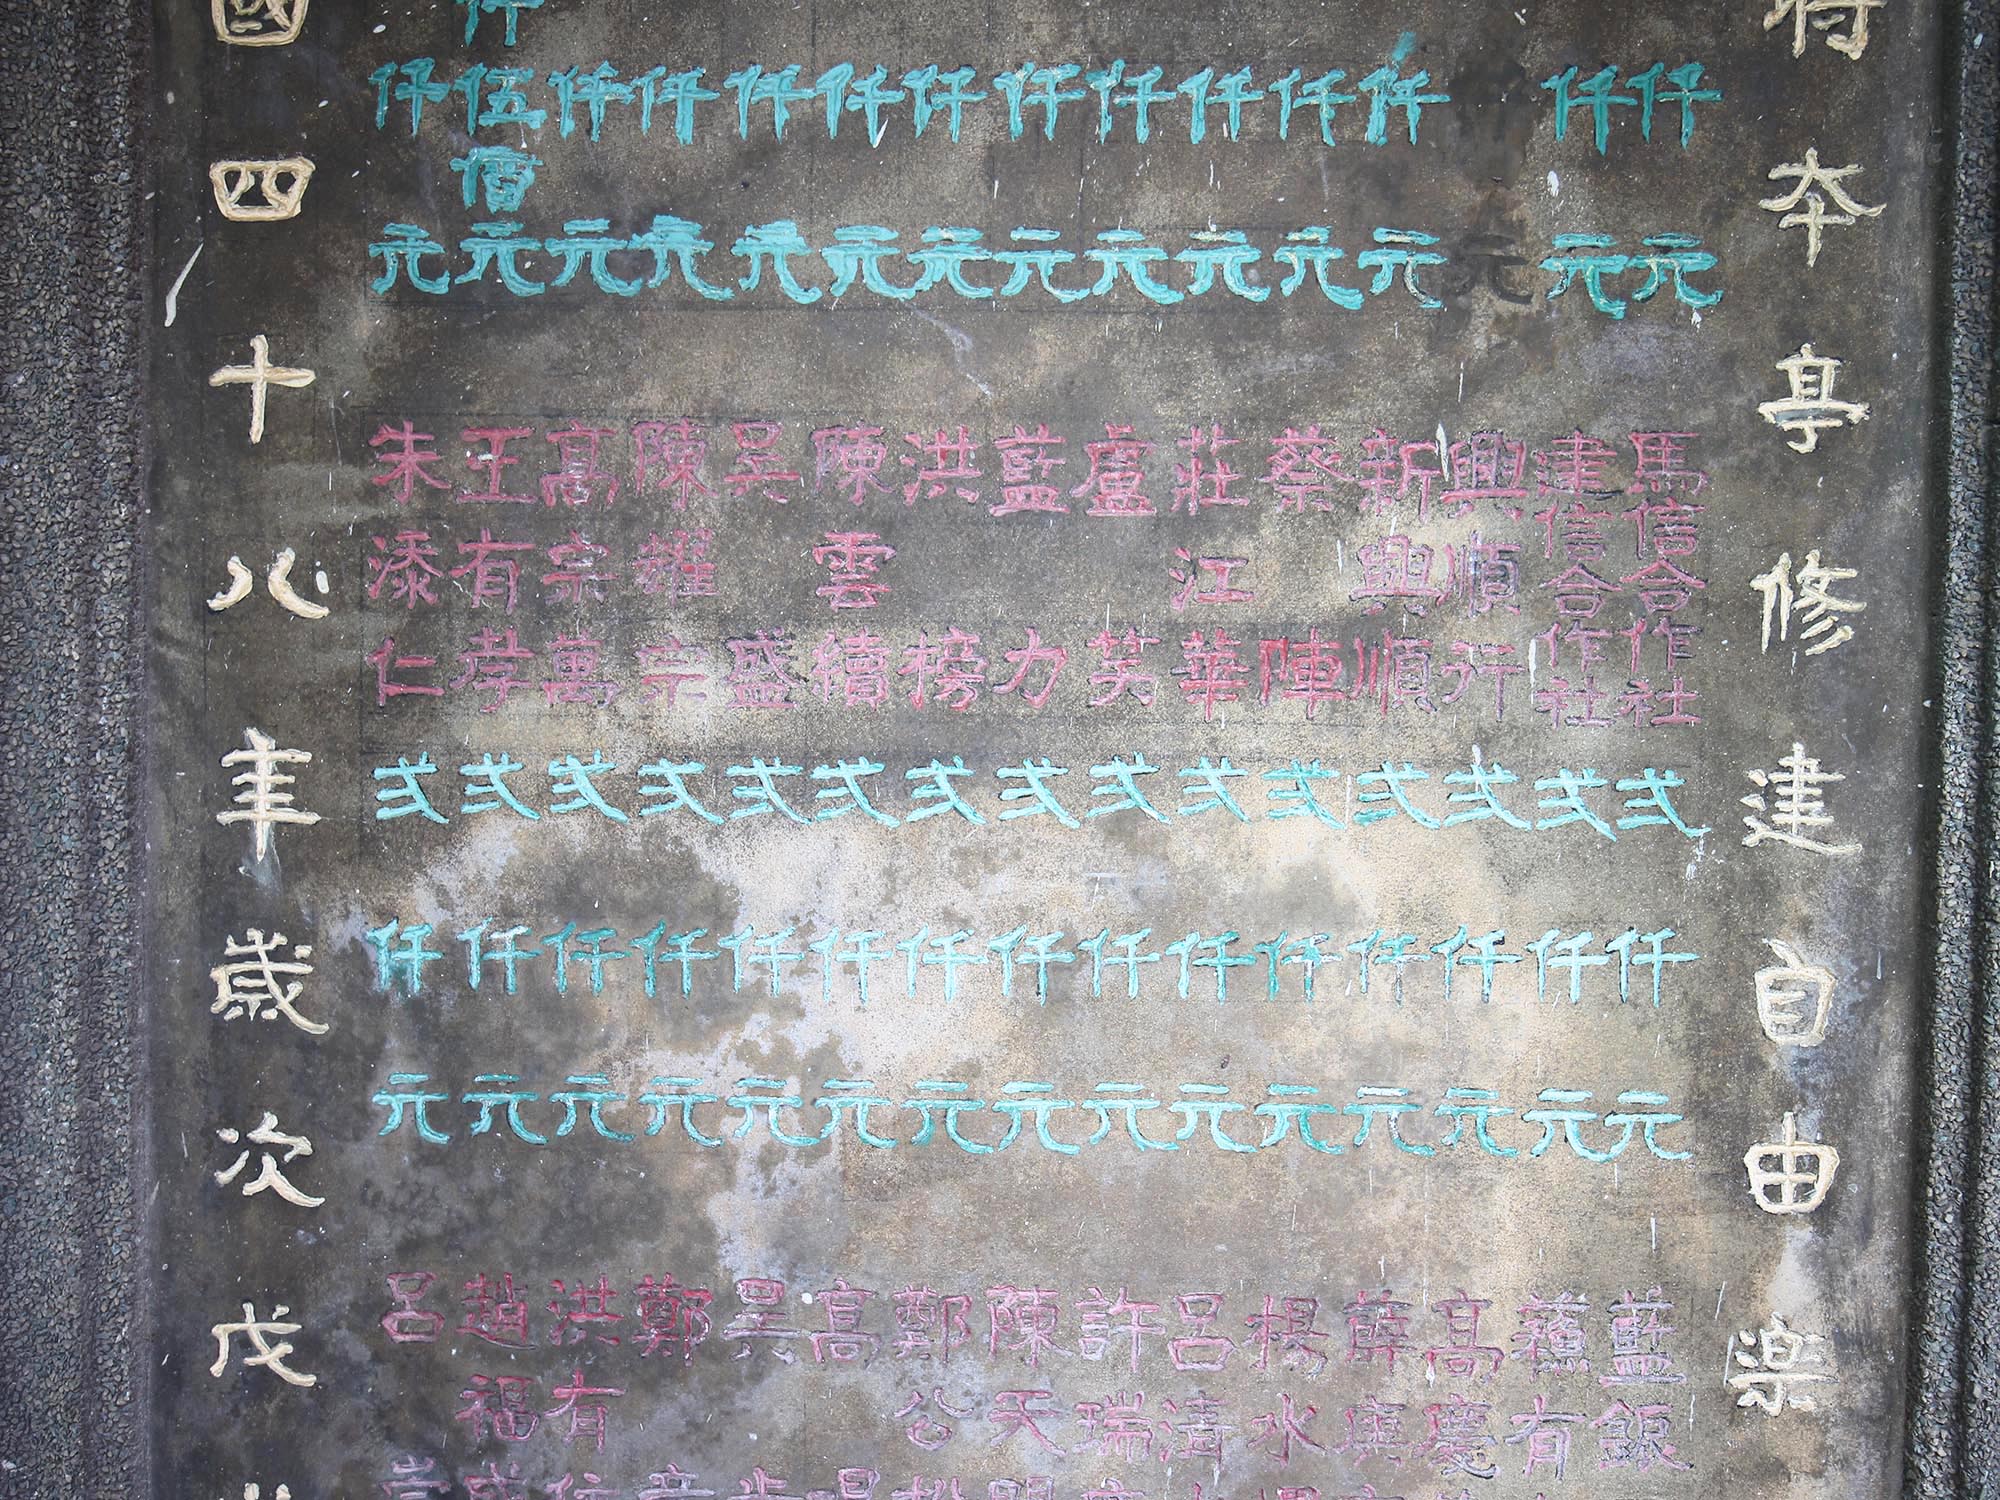 本亭修建自由樂
仟元
仟元
元
仟元
仟元
仟元
仟元
仟元
仟元
仟元
仟元
仟元
仟元
仟伍佰元
仟元
馬信合作社 弍仟元
建信合作社 弍仟元
興順行 弍仟元
新興順 弍仟元
蔡陣 弍仟元
莊江華 弍仟元
盧笑 弍仟元
藍力 弍仟元
洪榜 弍仟元
陳雲續 弍仟元
吳盛 弍仟元
陳耀宗 弍仟元
高宗萬 弍仟元
王有孝 弍仟元
朱添仁 弍仟元
藍銀
蘇有
高慶
薛興
楊水
呂清
許瑞
陳天
鄭公
高
吳
鄭
洪有
趙福
呂
國四十八年歲次戊